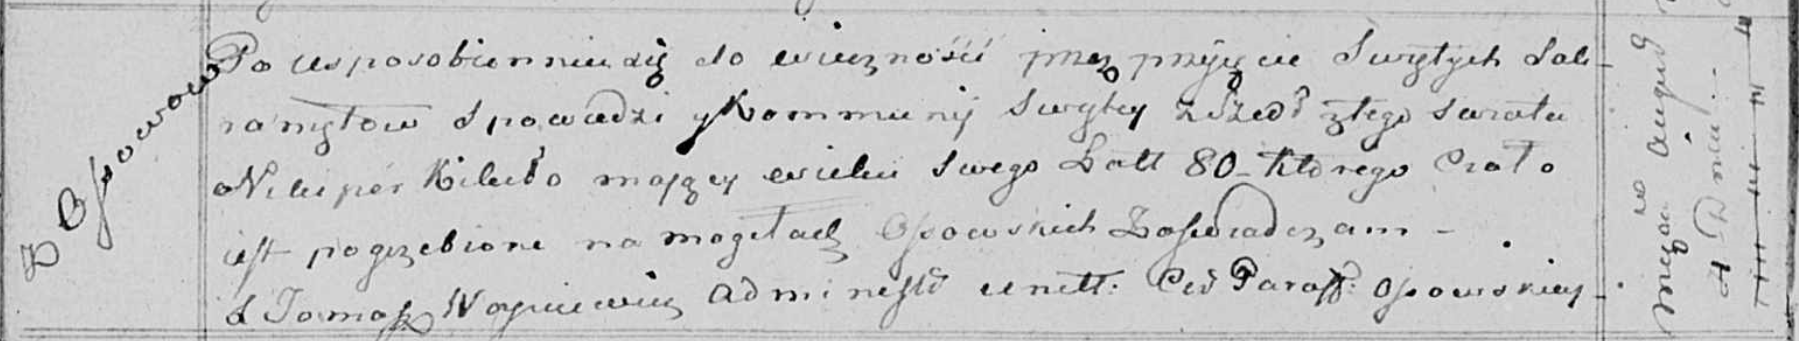 Z Osowow
Po usposobienniu się do wieczności przez przyięcie Swiętych Sak-
ramętow Spowiedzi y Kommunij Swiętey zszedł z tego swiata
Nikiper Kikiło maiący wieku swego Latt 80 którego Ciało
iest pogrzebione na mogiłach Osowskich Zaswiadczam -
X Tomasz Woyniewicz Administr unitt: Cer Paraff: Osowskiey
Miesąca August
A Dnia